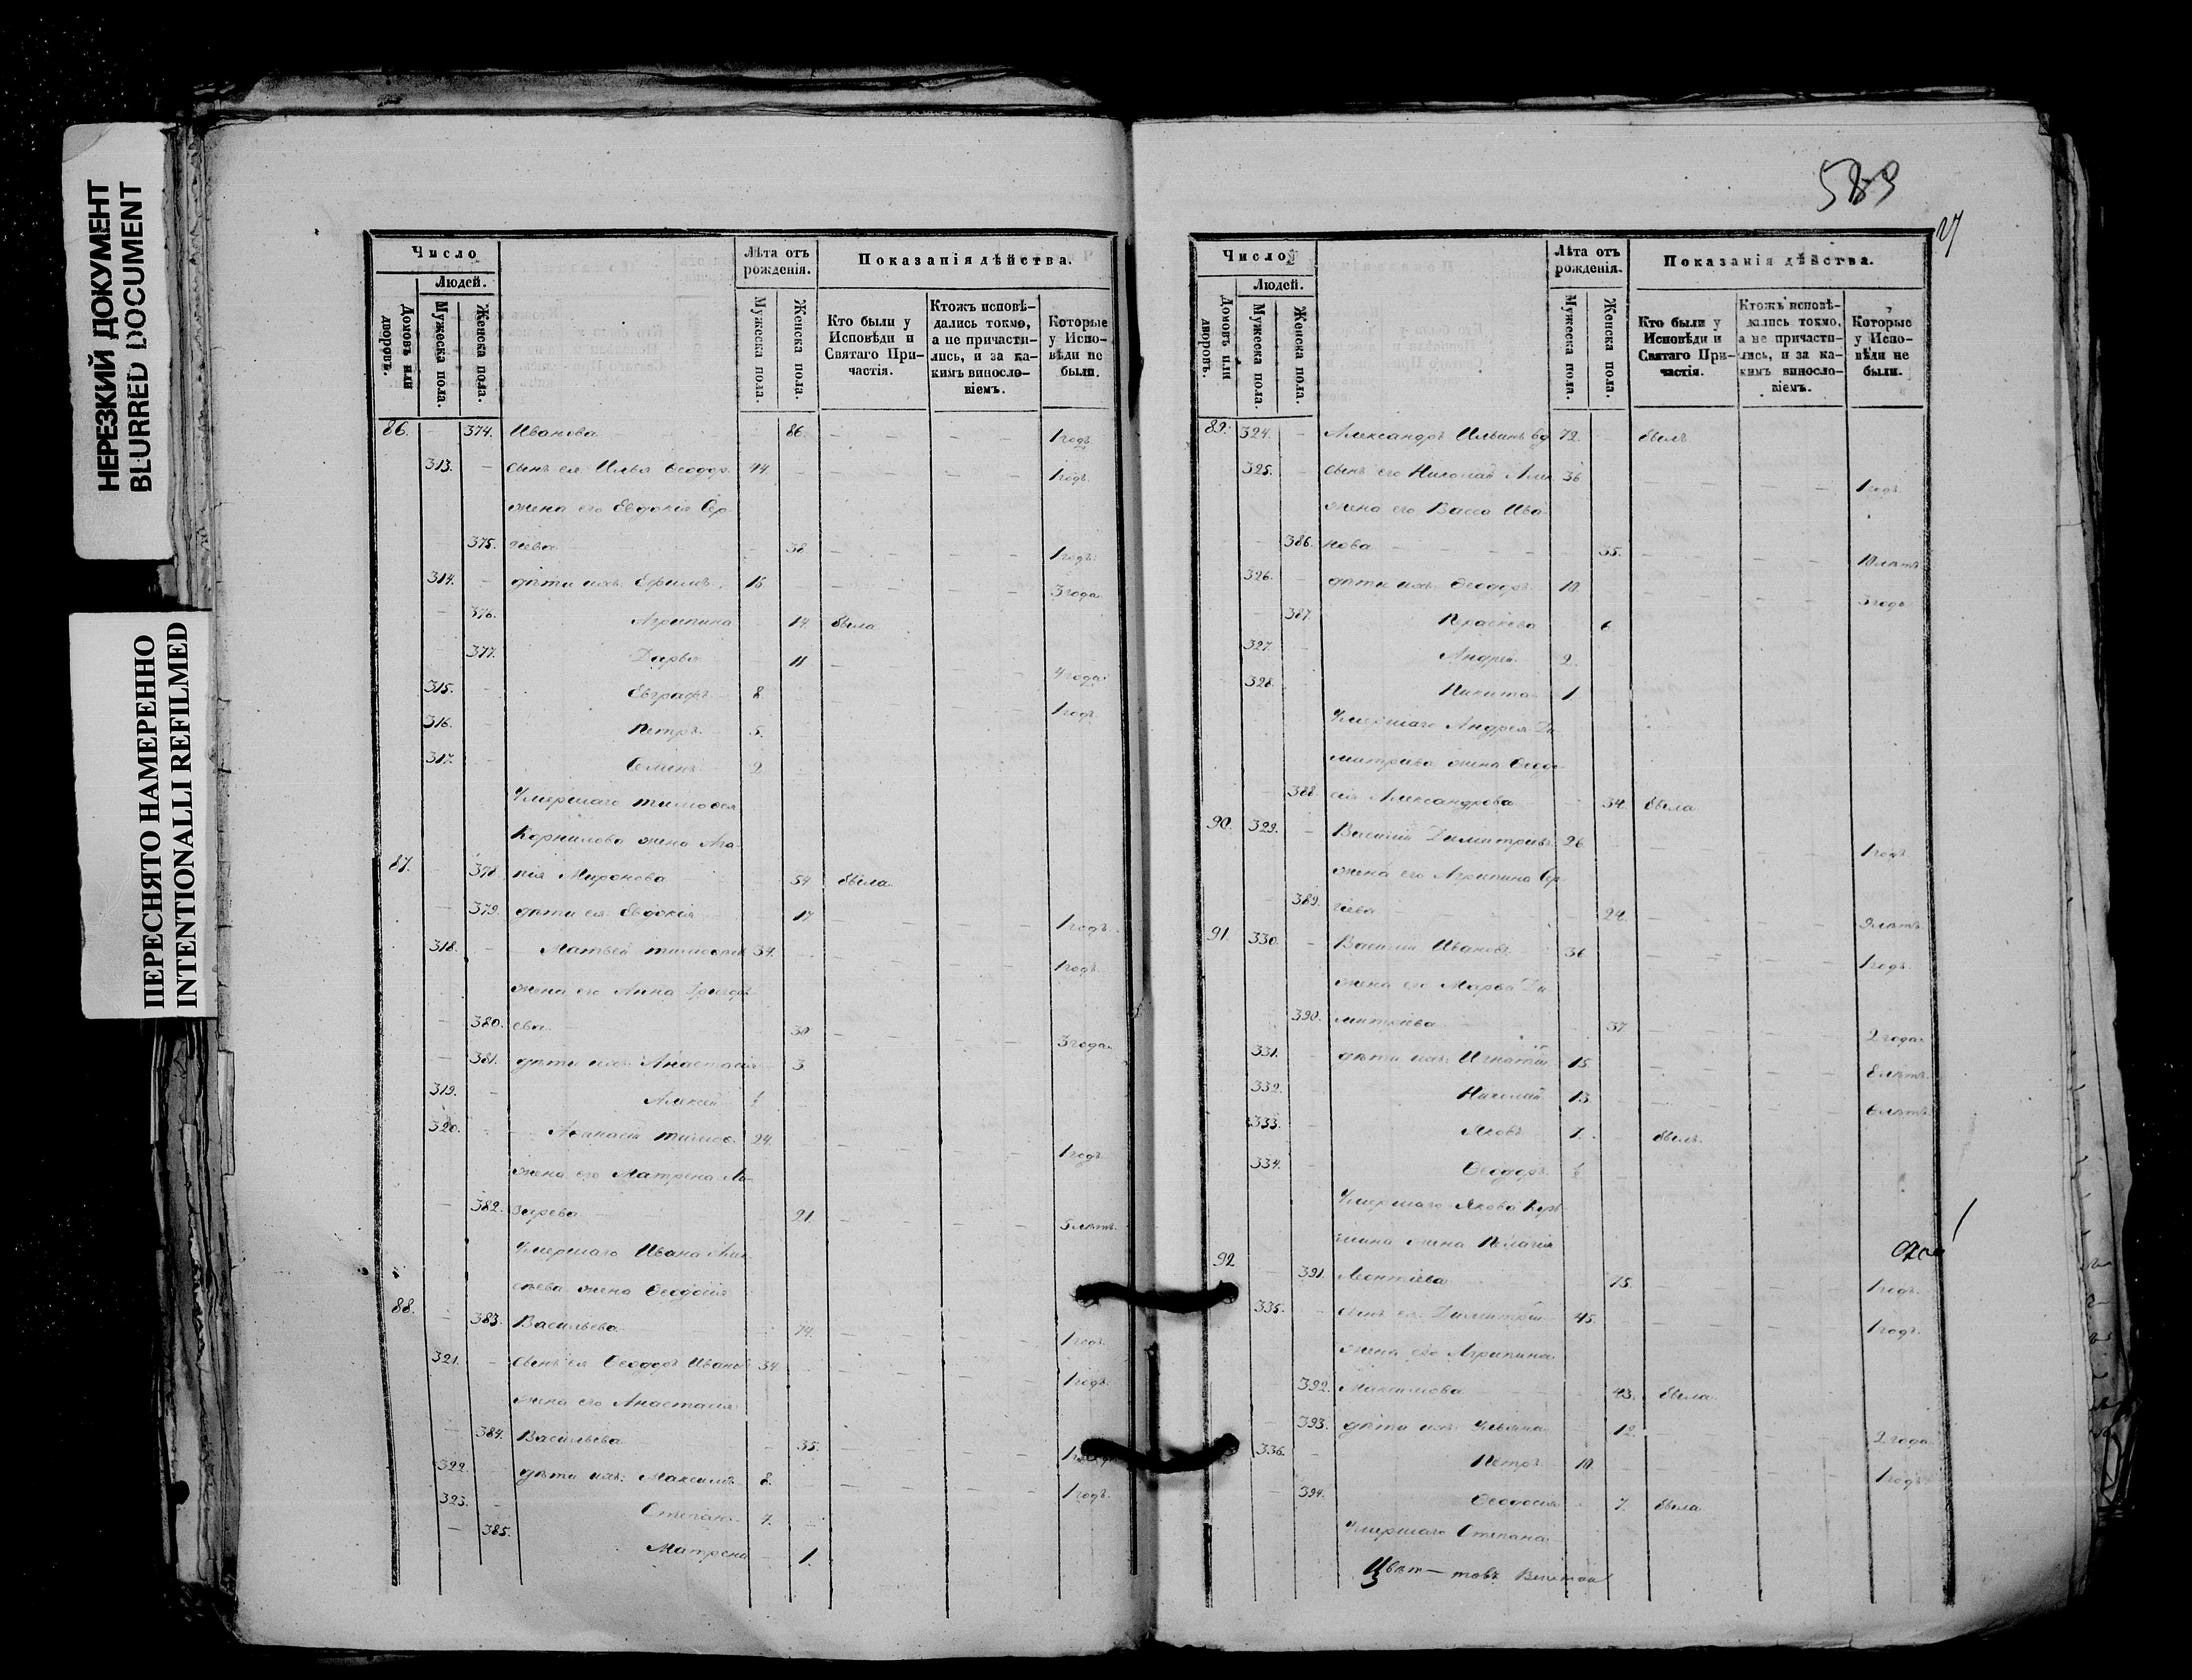 НЕРЕЗКИЙ ДОКУМЕНТ
BLURRED DOCUMENT
ПЕРЕСНЯТО НАМЕРЕННО
INTENTIONALLI REFILMED
Число
Людей.
Домовъ или дворовъ.
Мужеска пола.
Женска пола.
Лѣта отъ рожденія.
Мужеска пола.
Женска пола.
Показанія дѣйства.
Кто были у Исповѣди и Святаго Причастія.
Ктожъ исповѣдались токмо, а не причастились, и за какимъ винословіемъ.
Которые у Исповѣди не были.
86. 374. Иванова 86. 1 годъ
313. сынъ ея Илья Ѳеодор. 44. 1 годъ
жена его Евдокія Сер
375. гіева 38 1 годъ
314. дѣти ихъ: Ефимъ 16. 3 года
376. Агрипина 14. была
377. Дарья 11 4 года
315. Евграфъ 8 1 годъ
316. Петръ 5.
317. Семенъ 2
Умершаго Тимоѳея
Корнилова жена Ага
87. 378. пія Миронова 54 была
379. дѣти ея Евдокія 17 1 годъ
318. Матвей Тимоѳеев 34. 1 годъ
жена его Анна Григорь
380. ева 30 3 года
381. дѣти ихъ: Анастасія 3
319. Алексей ½
320. Аѳанасій Тимоѳ. 24. 1 годъ
жена его Матрена Ла-
382. зарева 21. 5 лѣтъ
Умершаго Ивана Али
сѣева жена Ѳеодосія
88. 383. Васильева 74. 1 годъ
321. сынъ ея Ѳеодоръ Ивановъ 34. 1 годъ
жена его Анастасія
384. Васильева 35.
322. дѣти ихъ: Максимъ 8. 1 годъ
323. Степанъ 4.
385. Матрена 1.
589
27
Число
Людей.
Домовъ или дворовъ.
Мужеска пола.
Женска пола.
Лѣта отъ рожденія.
Мужеска пола.
Женска пола.
Показанія дѣйства.
Кто были у Исповѣди и Святаго Причастія.
Ктожъ исповѣдались токмо, а не причастились, и за какимъ винословіемъ.
Которые у Исповѣди не были.
89. 324. Александръ Ильинъ вд 72. былъ
325. сынъ его Николай Алек 36 1 годъ
жена его Васса Ива
386. нова 35. 10 лѣтъ
326. дѣти ихъ Ѳеодоръ 10. 3 года
387. Параскева 6.
327. Андрей 2.
328. Никита 1
Умершаго Андрея Ди
митріева жена Ѳеодо
388. сія Александрова 34. была
90. 329. Василій Димитріевъ 26 1 годъ
жена его Агрипина Сер
389. гіева 24.
91. 330. Василій Ивановъ 36 1 годъ
жена его Марья Ди
390. митріева 37 2 года
331. дѣти ихъ: Игнатій 15 8 лѣтъ
332. Николай 13. 6 лѣтъ
333. Яковъ 7. былъ
334. Ѳеодоръ ½
Умершаго Якова Кор
нилина жена Пелагія
92 391. Леонтіева 75. 1 годъ
335. сынъ ея Димитрій 45. 1 годъ
жена его Агрипина
392. Максимова 43. была
393. дѣти ихъ: Ульяна 12. 2 года
336. Петръ 10. 1 годъ
394. Ѳеодосія 7. была
Умершаго Степана